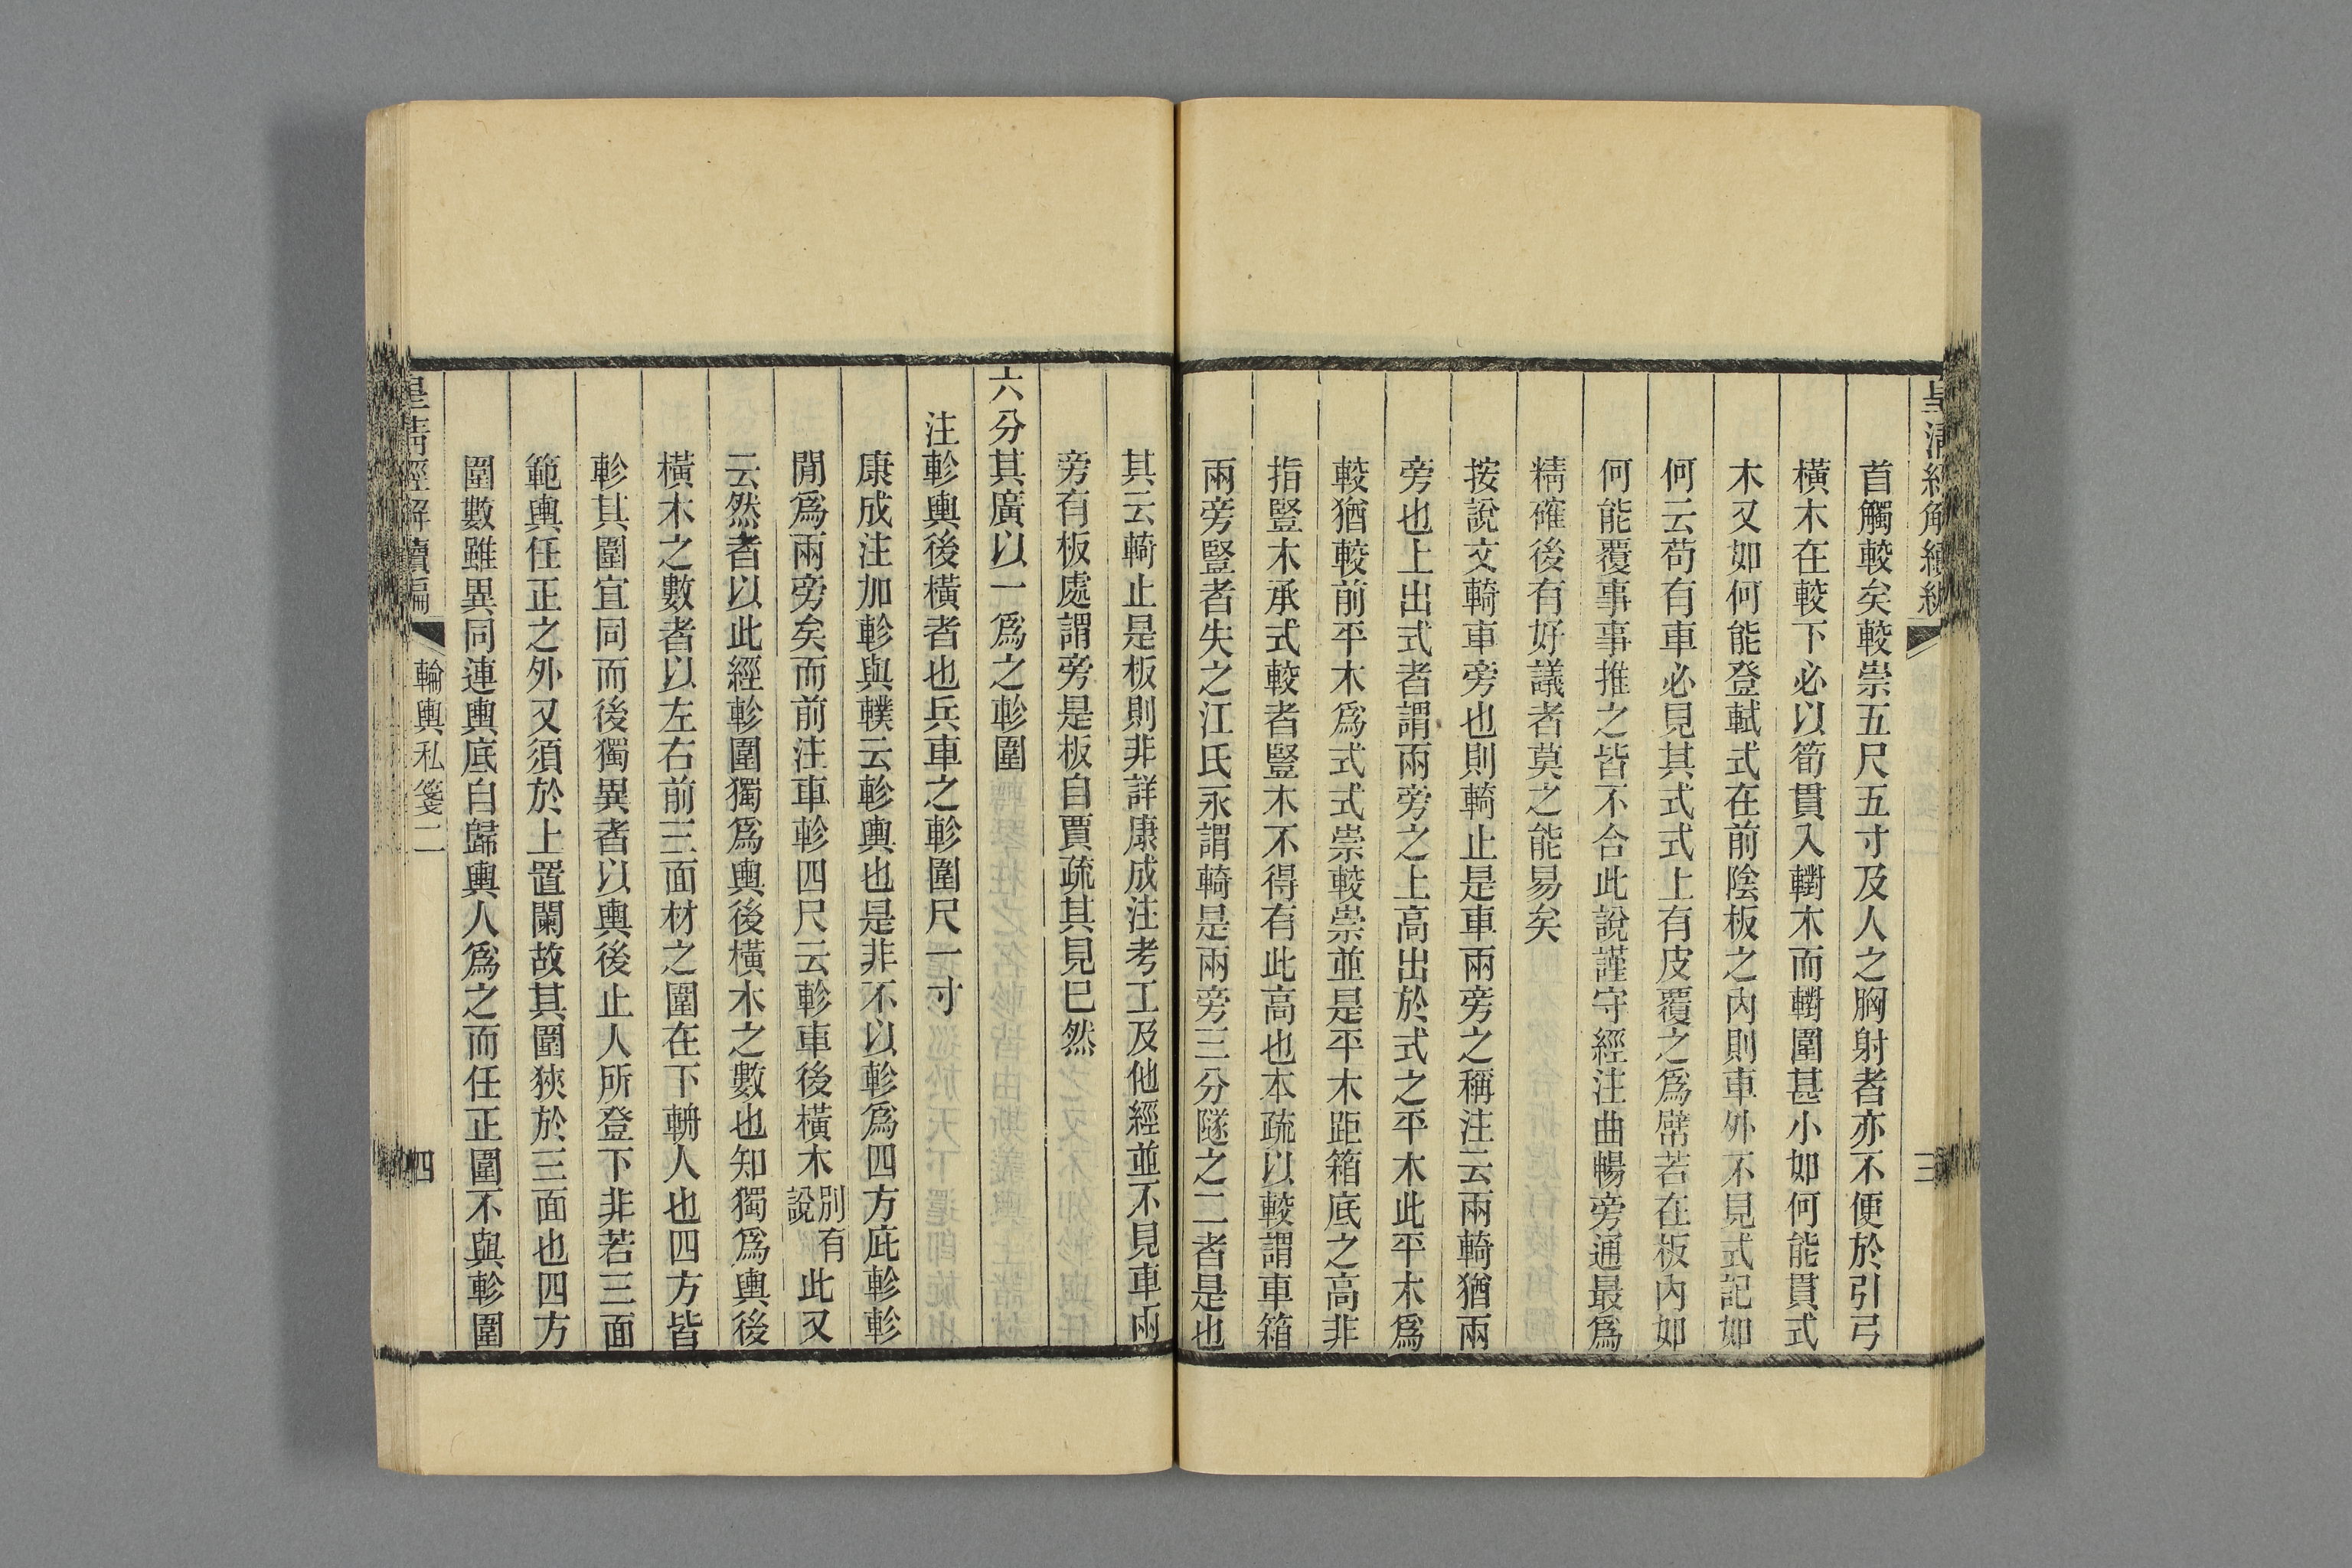 皇清經解續編
三
首觸較矣較崇五尺五寸及人之胸射者亦不便於引弓
橫木在較下必以筍貫入轛木而轛圍甚小如何能貫式
木又如何能登軾式在前陰板之內則車外不見式記如
何云苟有車必見其式式上有皮覆之爲幦若在板內如
何能覆事事推之皆不合此說謹守經注曲暢旁通最爲
精確後有好議者莫之能易矣
按說文輢車旁也則輢止是車兩旁之稱注云兩輢猶兩
旁也上出式者謂兩旁之上高出於式之平木此平木爲
較猶較前平木爲式式崇較崇並是平木距箱底之高非
指豎木承式較者豎木不得有此高也本疏以較謂車箱
兩旁豎者失之江氏永謂輢是兩旁三分隧之二者是也
其云輢止是板則非詳康成注考工及他經並不見車兩
旁有板處謂旁是板自賈疏其見已然
六分其廣以一爲之軫圍
注軫輿後橫者也兵車之軫圍尺一寸
康成注加軫與轐云軫輿也是非不以軫爲四方庇軫軫
閒爲兩旁矣而前注車軫四尺云軫車後橫木別有說此又
云然者以此經軫圍獨爲輿後橫木之數也知獨爲輿後
橫木之數者以左右前三面材之圍在下輈人也四方皆
軫其圍宜同而後獨異者以輿後止人所登下非若三面
範輿任正之外又須於上置闌故其圍狹於三面也四方
圍數雖異同連輿底自歸輿人爲之而任正圍不與軫圍
皇清經解續編
輪輿私箋二
四